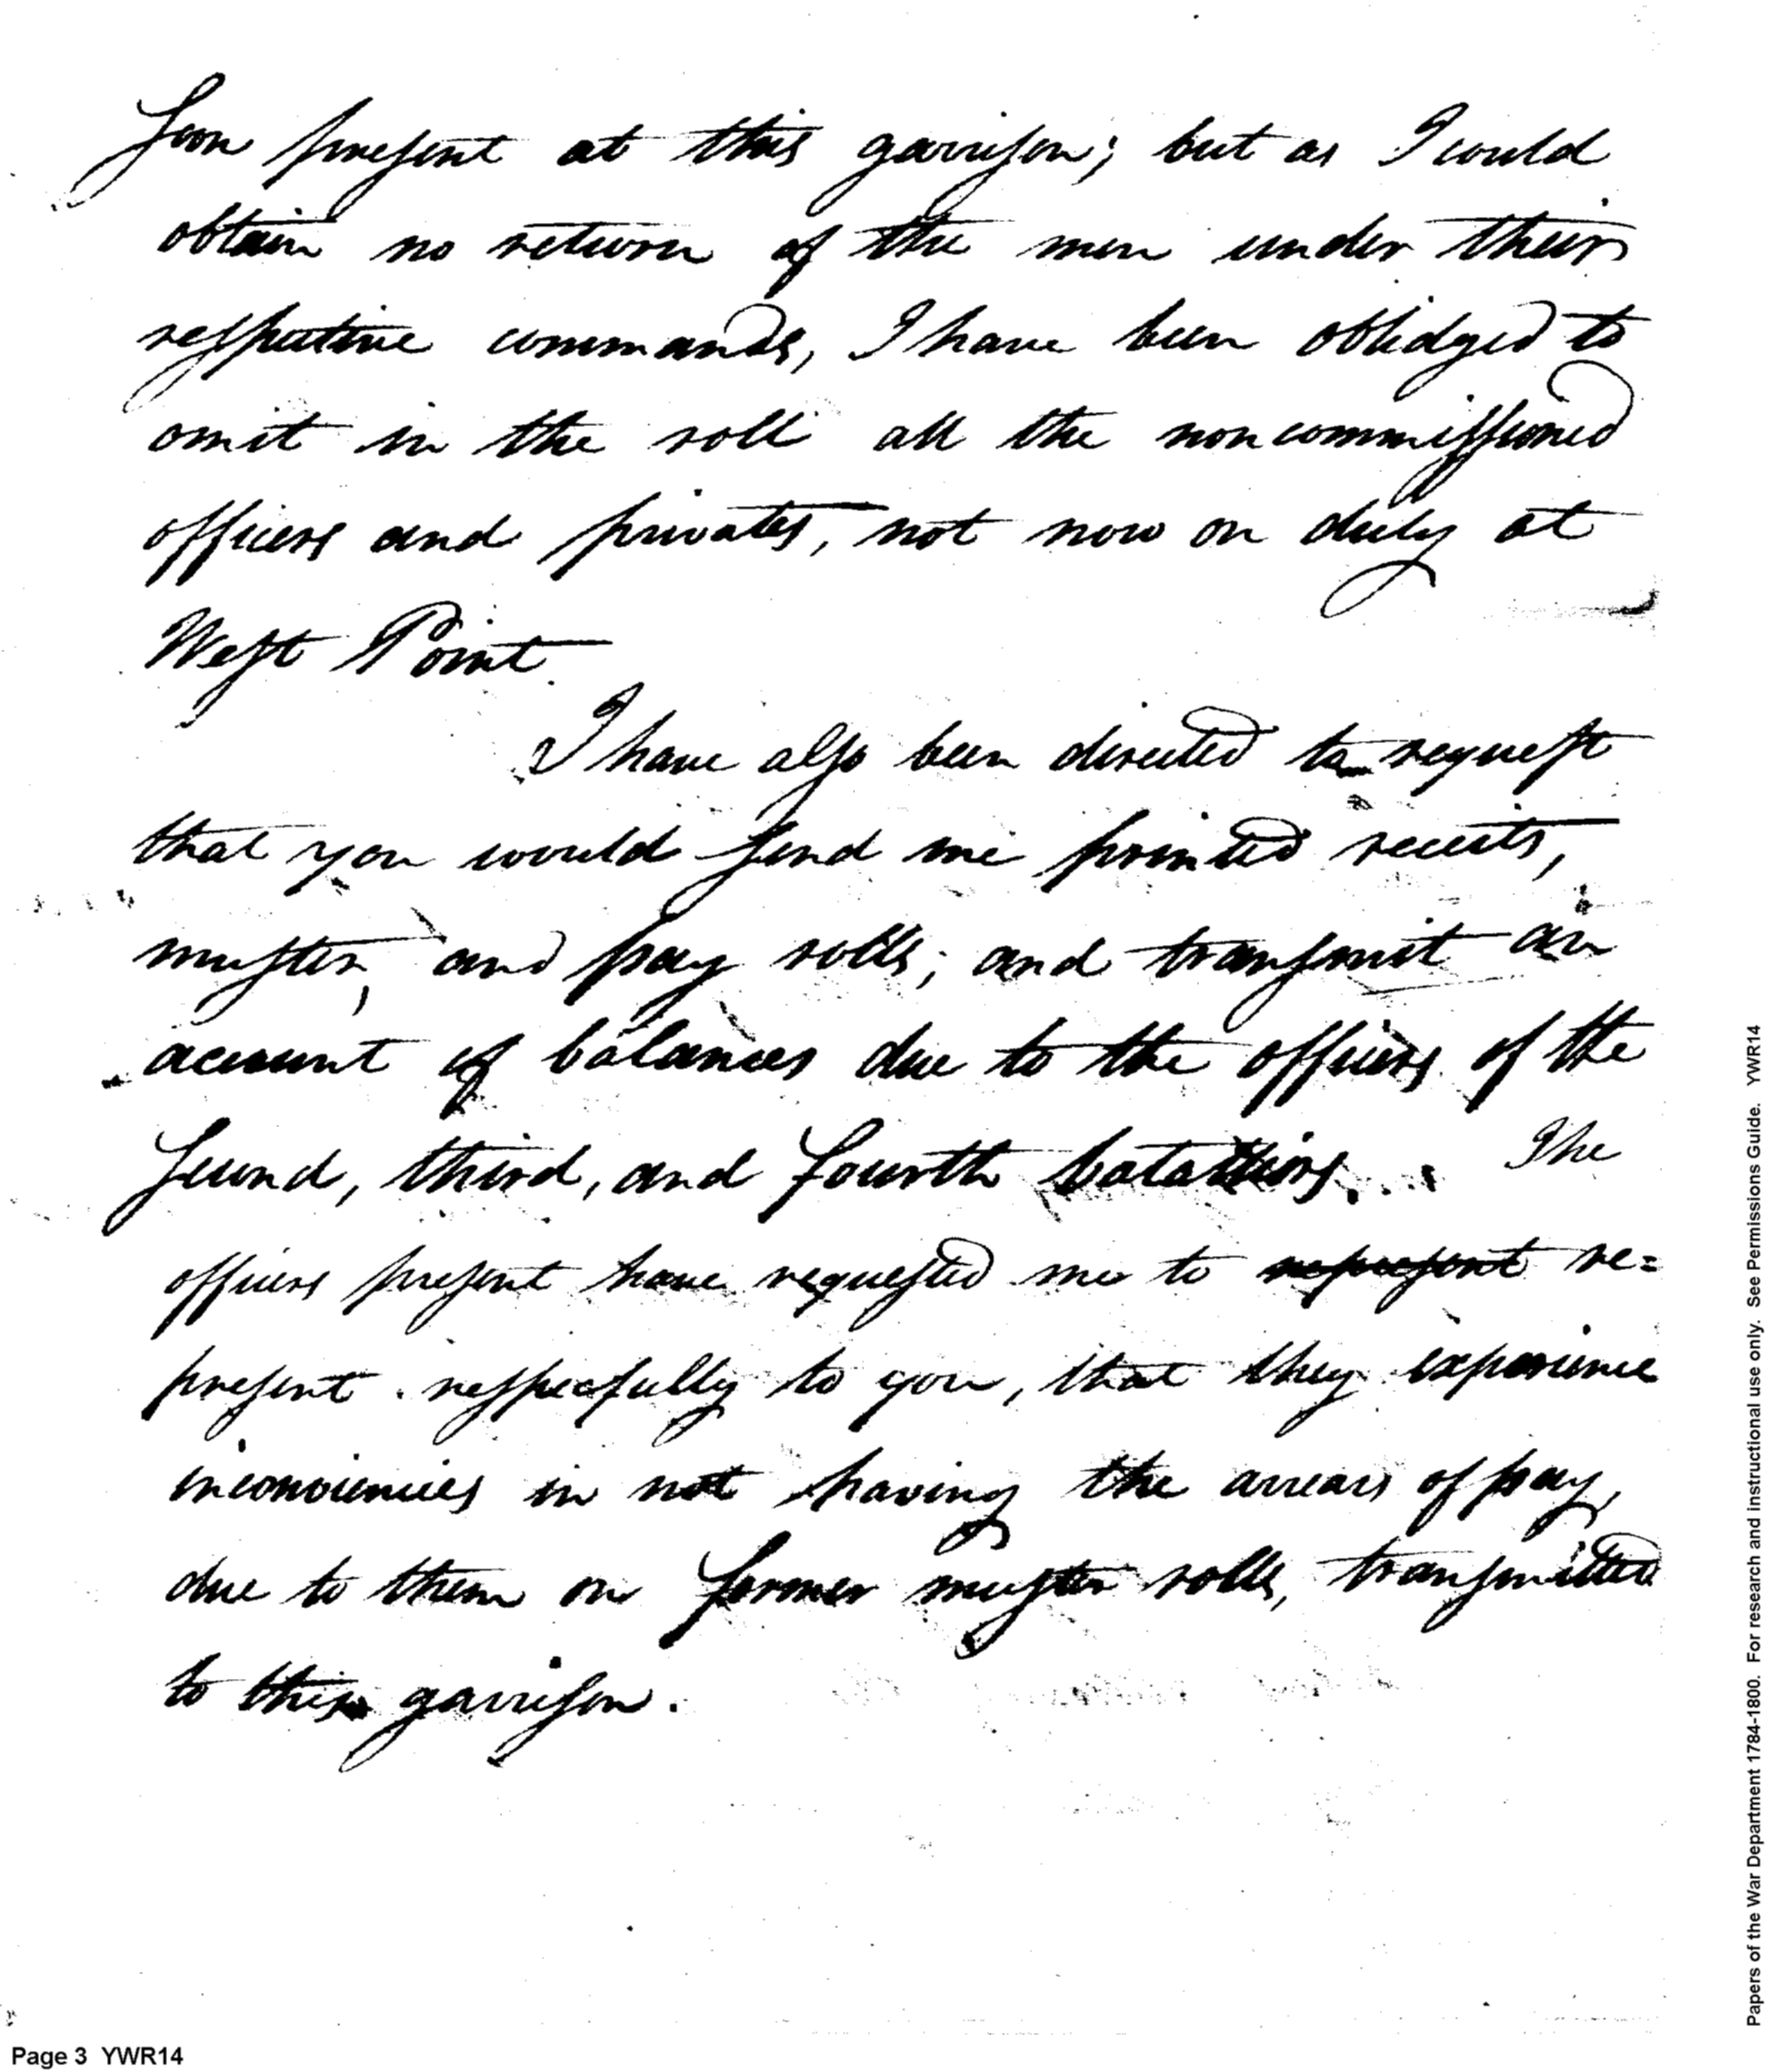 soon present at this garrison; but as I could
obtain no return of the men under their
respective commands, I have been oblidged to
omit in the roll all the noncommissioned
officers and privates, not now on duty at
West Point.
I have also been directed to request
that you would send me printed receits,
muster, and pay rolls; and transmit an
account of balances due to the officers of the
second, third, and fourth batallions. The
officers present have requested me to represent re=
present respecfully to you, that they experience
inconviencies in not having the arrears of pay,
due to them on former muster rolls, transmitted
to this garrison.
Page 3 YWR14
Papers of the War Department 1784-1800. For research and instructional use only. See Permissions Guide. YWR14